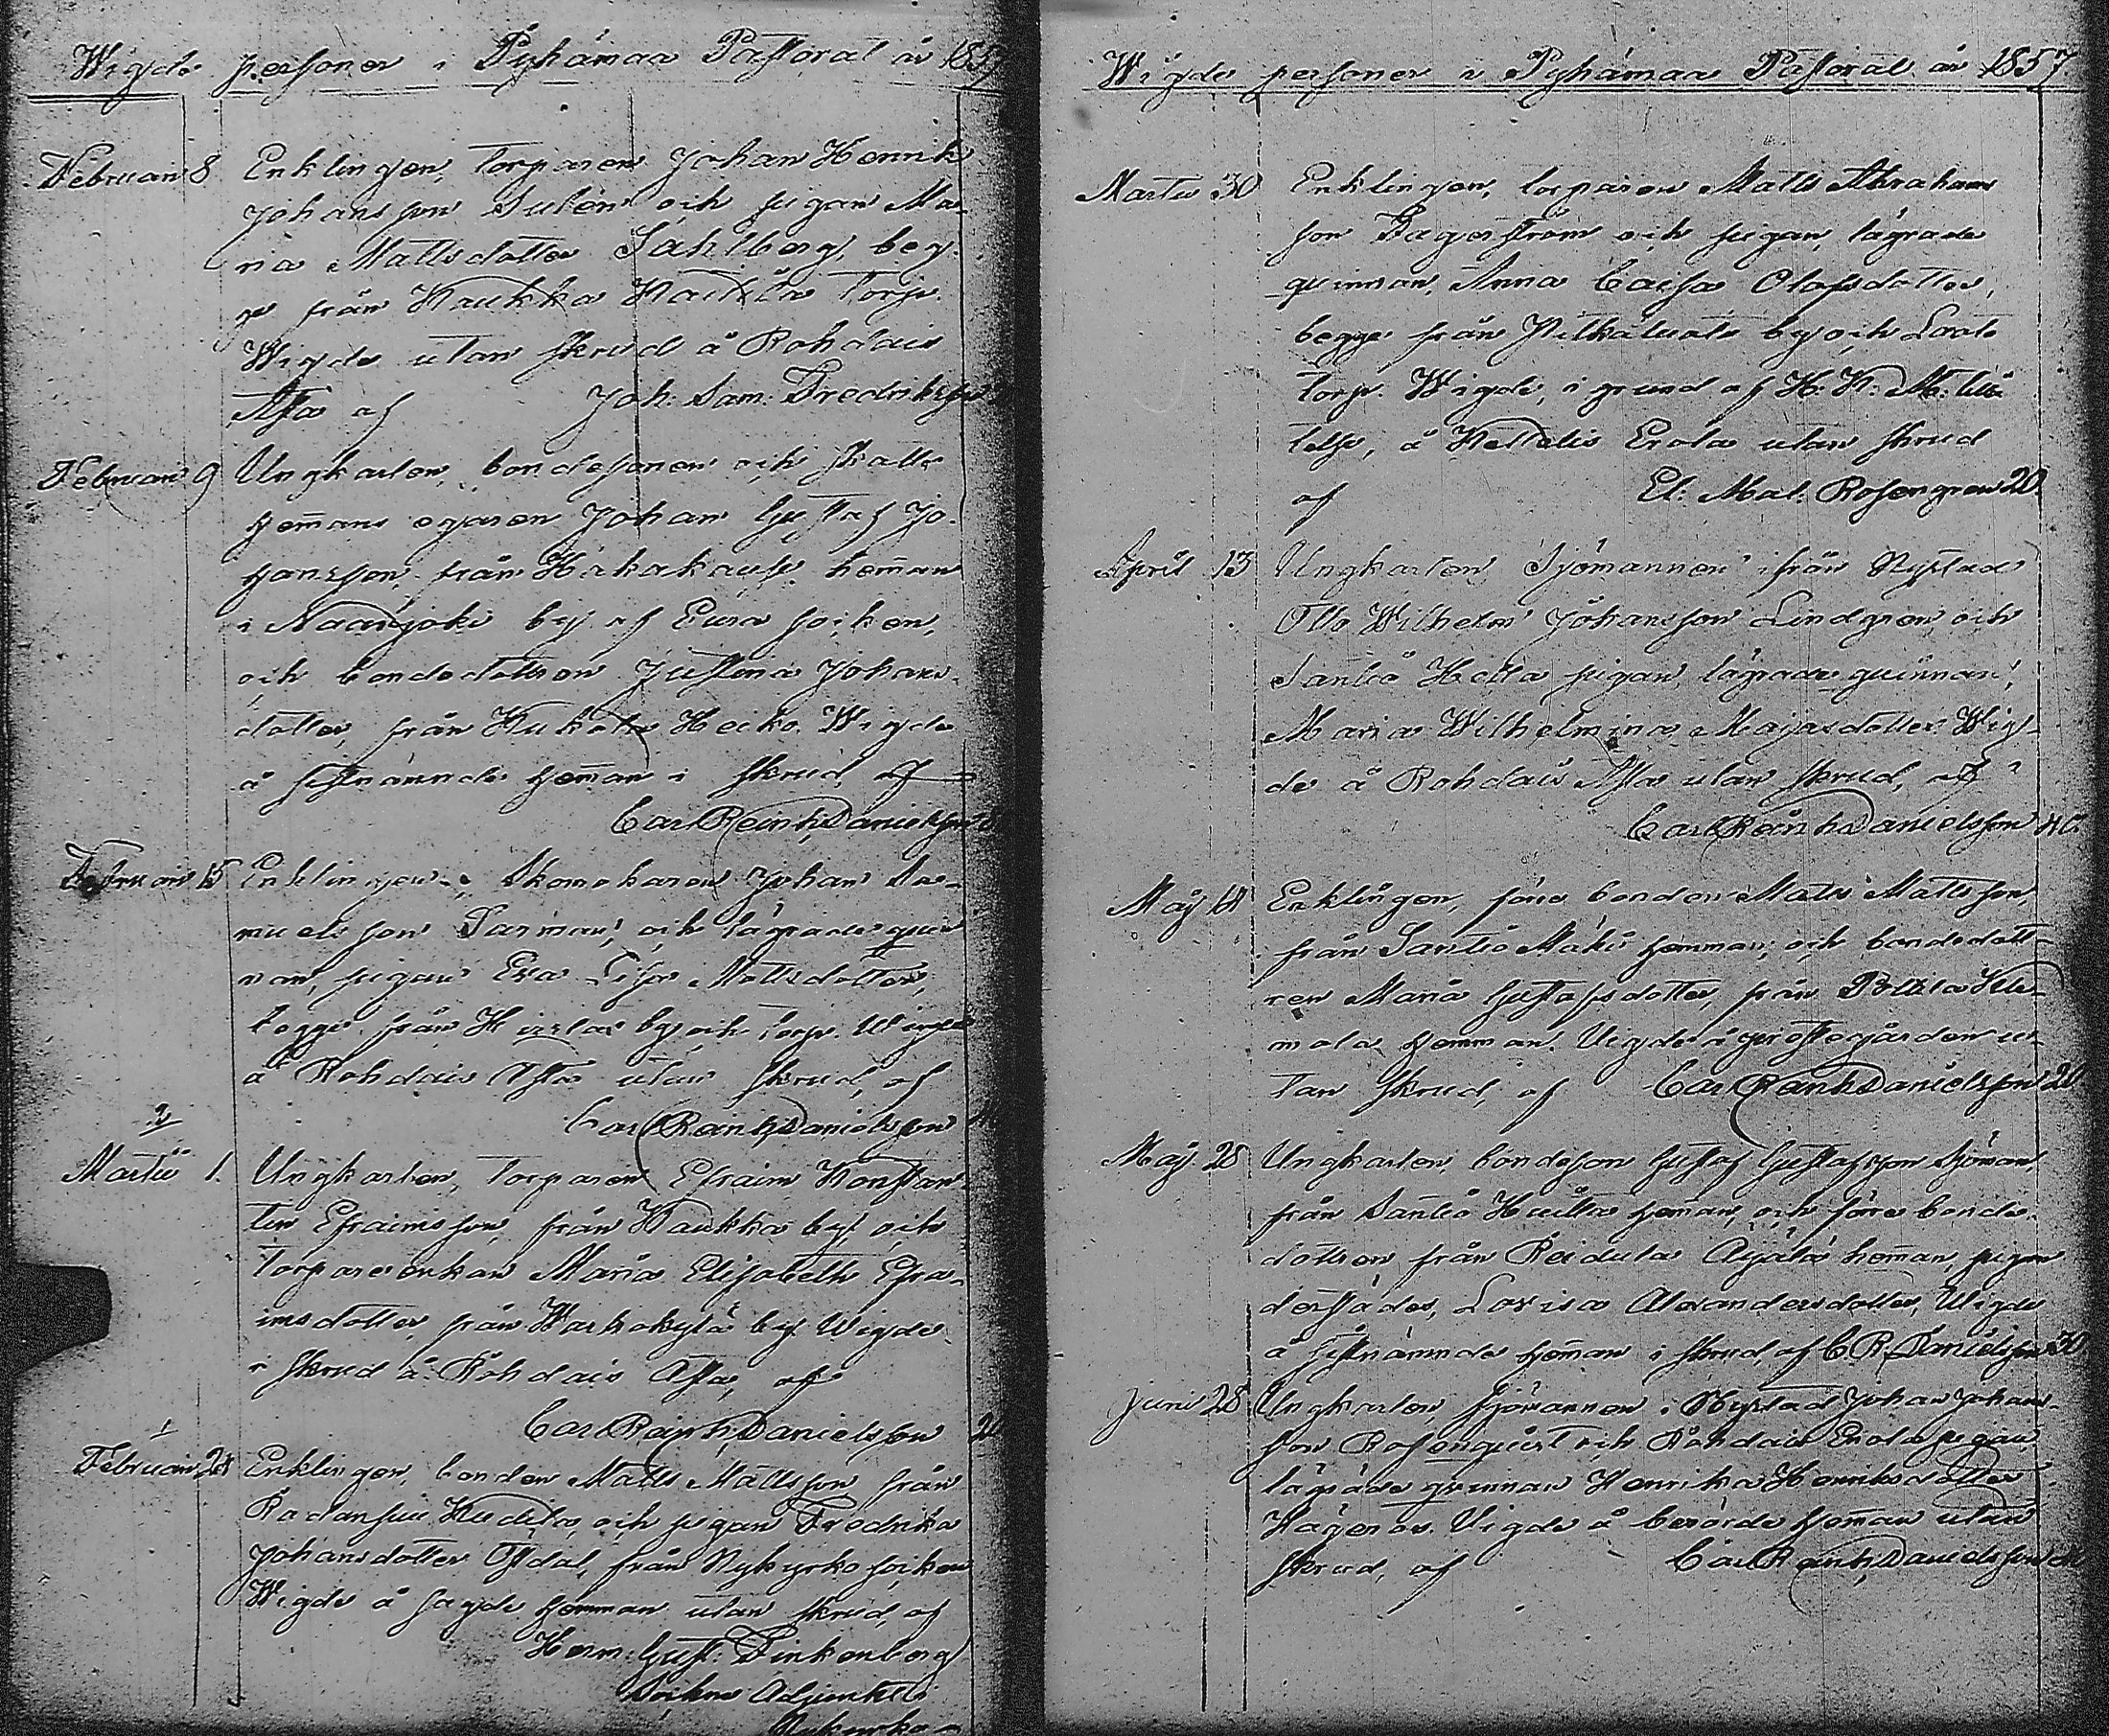 Wigde personer i Pyhämaa Pastorat år 1857
Februari 8 Enklingen, torparen Johan Henrik
Johansson Sulén och pigan Ma-
ria Mattsdotter Sahlberg, beg-
ge från Kaukka torp.
Wigde utan skrud å Rohdais
Asta af Joh: Sam: Fredriksson
Februari 9 Ungkarlen, bondesonen och skatte
hem̄ans egaren Johan Gustaf Jo-
hansson från hem̄an
i Naarjoki by af Eura socken,
och bondedottren Justina Johans-
dotter, från Kukola Heiko. Wigde
å sistnämnde hem̄an i skrud, af
Carl Reinh. Danielsson
Februari 15 Enklingen, Skomakaren Johan Sa-
muelsson och lägrade quin-
nan, pigan Eva Lisa Mattsdotter,
begge från by och torp. Wigde
å Rohdais Asta utan skrud, af
Carl Reinh. Danielsson
2
Martii 1. Ungkarlen, torparen Efraim Konstan-
tin Efraimsson, från Kaukka by, och
torpare enkan Maria Elisabeth Efra-
imsdotter, från Warhokylä by. Wigde
i skrud å Rohdais Asta, af
Carl Reinh. Danielsson 20
1
Februari 24 Enklingen, bonden Matts Mattsson från
och pigan Fredrika
Johansdotter från Nykyrko socken
Wigde å sagde hemman utan skrud, af
Herm: Gust: Finkenberg
Sockne Adjunkt i
Nykyrko
Wigde personer i Pyhämaa Pastorat år 1857.
Martii 30 Enklingen, torparen Matts Abrahams
son Fagerström och pigan, lägrade
quinnan, Anna Caisa Olofsdotter,
begge från Pitkäluoto by och
torp. Wigde, i grund af H: K: M: tillå
telse, å Ketteli Erola utan skrud
af El: Mat: Rosengren 20.
April 13 Ungkarlen Sjömannen ifrån Nystad
Otto Wilhelm Johansson Lindgren och
Santio pigan, lägrade quinnan,
Maria Wilhelmina Majasdotter. Wig-
de å Rohdais Asta utan skrud, af
Carl Reinh. Danielsson 40
Maj 14 Enklingen, förre bonden Matts Mattsson,
från Santio Mäki hemman, och bondedott-
ren Maria Gustafsdotter, från
mala hemman. Vigde å prestegården u-
tan skrud, af Carl Reinh. Danielsson 20
Maj 28 Ungkarlen, bondeson Gustaf Gustafsson Sjöman
från Santio hem̄an, och förre bonde-
dottren från Reidula Alijala hem̄an, pigan
derstädes, Lovisa Alexandersdotter, Wigde
å sistnämnde hem̄an i skrud, af C. R. Danielsson 30
Juni 28 Ungkarlen, sjömannen i Nystad Johan Johans-
son Rosenquist och Rohdais Erola pigan,
lägrade quinnan Henrika Henriksdotter
Wigde å berörde hem̄an utan
skrud, af Carl Reinh. Danielsson